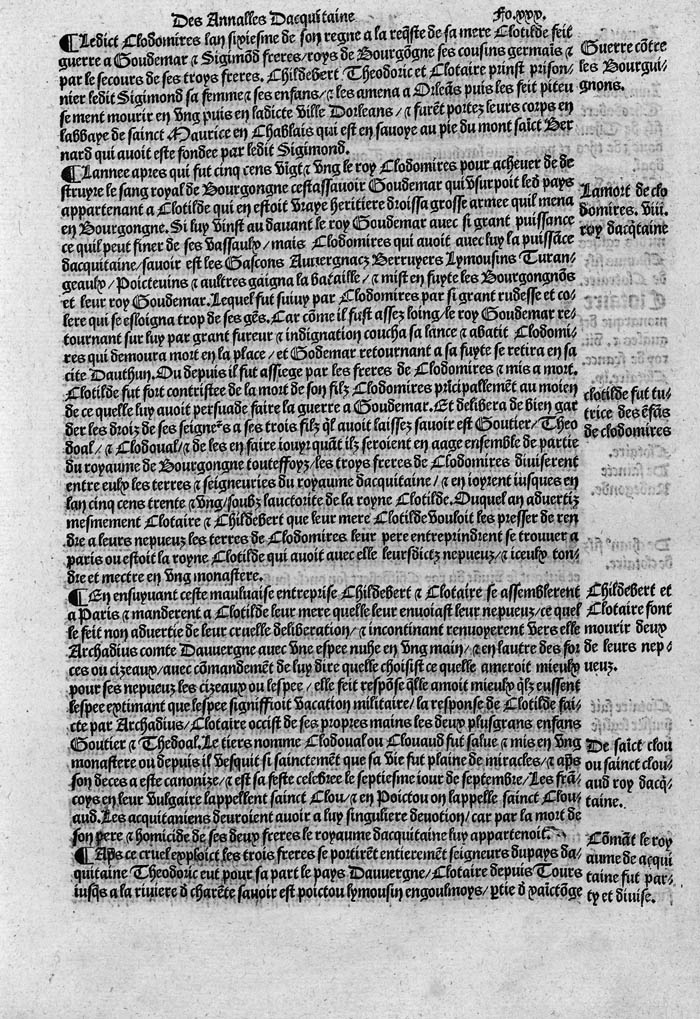 Des Annalles Dacquitaine Fo.xxx.
¶Ledict Clodomires lan sixiesme de son regne a la reqste de sa mere Clotilde feit
guerre a Goudemar ⁊ Sigimõd freres/roys de Bourgõgne ses cousins germaïs ⁊
par le secours de ses troys freres. Childebert Theodoric et Clotaire prinst prison/
nier ledit Sigimond sa femme ⁊ ses enfans/⁊ les amena a Orleãs puis les feit piteu
se ment mourir en vng puis en ladicte ville Dorleans/⁊ furẽt portez leurs corps en
labbaye de sainct Maurice en Chablais qui est en savoye au pie du mont saïct Ber
nard qui auoit este fondee par ledit Sigimond.
Guerre cõtre
les Bourgui/
gnons.
¶Lannee apres qui fut cinq cens vigt ⁊ vng le roy Clodomires pour acheuer de de
struyre le sang royal de Bourgongne cestassauoir Goudemar qui vsurpoit led pays
appartenant a Clotilde qui en estoit vraye heritiere droissa grosse armee quil mena
en Bourgongne. Si luy vinst au dauant le roy Goudemar auec si grant puissance
ce quil peut finer de ses vassaulx/mais Clodomires qui auoit auec luy la puissãce
dacquitaine/sauoir est les Gascons Auuergnacz Berruyers Lymousins Turan/
geaulx/Poicteuins ⁊ aultres gaigna la bataille/⁊ mist en fuyte les Bourgongnõs
et leur roy Goudemar. Lequel fut suiuy par Clodomires par si grant rudesse et co/
lere qui se esloigna trop de ses gẽs. Car cõme il fust assez loing/le roy Goudemar re/
tournant sur luy par grant fureur ⁊ indignation coucha sa lance ⁊ abatit Clodomi/
res qui demoura mort en la place/et Godemar retournant a sa fuyte se retira en sa
cite Dauthun. Ou depuis il fut assiege par les freres de Clodomires ⁊ mis a mort.
Clotilde fut fort contristee de la mort de son filz Clodomires prĩcipallemẽt au moien
de ce quelle luy auoit persuade faire la guerre a Goudemar. Et delibera de bien gar
der les droiz de ses seigneʳˢ a ses trois filz ql auoit laissez sauoir est Goutier/Theo
doal/⁊ Clodoual/⁊ de les en faire iouyr quãt ilz seroient en aage ensemble de partie
du royaume de Bourgongne touteffoyz/les troys freres de Clodomires diuiserent
entre eulx les terres ⁊ seigneuries du royaume dacquitaine/⁊ en ioyrent iusques en
lan cinq cens trente ⁊ vng/soubz lauctorite de la royne Clotilde. Ouquel an aduertiz
mesmement Clotaire ⁊ Childebert que leur mere Clotilde vouloit les presser de ren
dre a leurs nepueuz les terres de Clodomires leur pere entreprindrent se trouuer a
paris ou estoit la royne Clotilde qui auoit auec elle leursdictz nepueuz/⁊ iceulx ton/
dre et mectre en vng monastere.
La mort de clo
domires. viii.
roy dacqtaine
clotilde fut tu/
trice des ẽfãs
de clodomires
¶En ensuyuant ceste mauluaise entreprise Childebert ⁊ Clotaire se assemblerent
a Paris ⁊ manderent a Clotilde leur mere quelle leur enuoiast leur nepueuz/ce quel
le feit non aduertie de leur cruelle deliberation/⁊ incontinant renuoyerent vers elle
Archadius comte Dauuergne auec vne espee nuhe en vng main/⁊ en lautre des for
ces ou cizeaux/auec cõmandemẽt de luy dire quelle choisist ce quelle ameroit mieulx
pour ses nepueuz les cizeaux ou lespee/elle feit respõse qlle amoit mieulx qlz eussent
lespee extimant que lespee signiffioit vacation militaire/la response de Clotilde fai/
cte par Archadius/Clotaire occist de ses propres mains les deux plusgrans enfans
Goutier ⁊ Thedoal. Le tiers nomme Clodoual ou Clouaud fut salue ⁊ mis en vng
monastere ou depuis il vesquit si sainctemẽt que sa vie fut plaine de miracles/⁊ aps
son deces a este canonize/⁊ est sa feste celebree le septiesme iour de septembre/Les frã/
coys en leur vulgaire lappellent sainct Clou/⁊ en Poictou on lappelle sainct Clou/
aud. Les acquitaniens deuroient auoir a luy singuliere deuotion/car par la mort de
son pere ⁊ homicide de ses deux freres le royaume dacquitaine luy appartenoit.
Childebert et
Clotaire font
mourir deux
de leurs nep/
ueuz.
De saïct clou
ou sainct clou/
aud roy dacq/
taine.
¶Aps ce cruel exploict les trois freres se portirẽt entieremẽt seigneurs du pays da/
quitaine Theodoric eut pour sa part le pays Dauuergne/Clotaire depuis Tours
iusqs a la riuiere d charẽte sauoir est poictou lymousin engoulmoys/ptie d xaïctõge
Cõmãt le roy
aume de acqui
taine fut par/
ty et diuise.